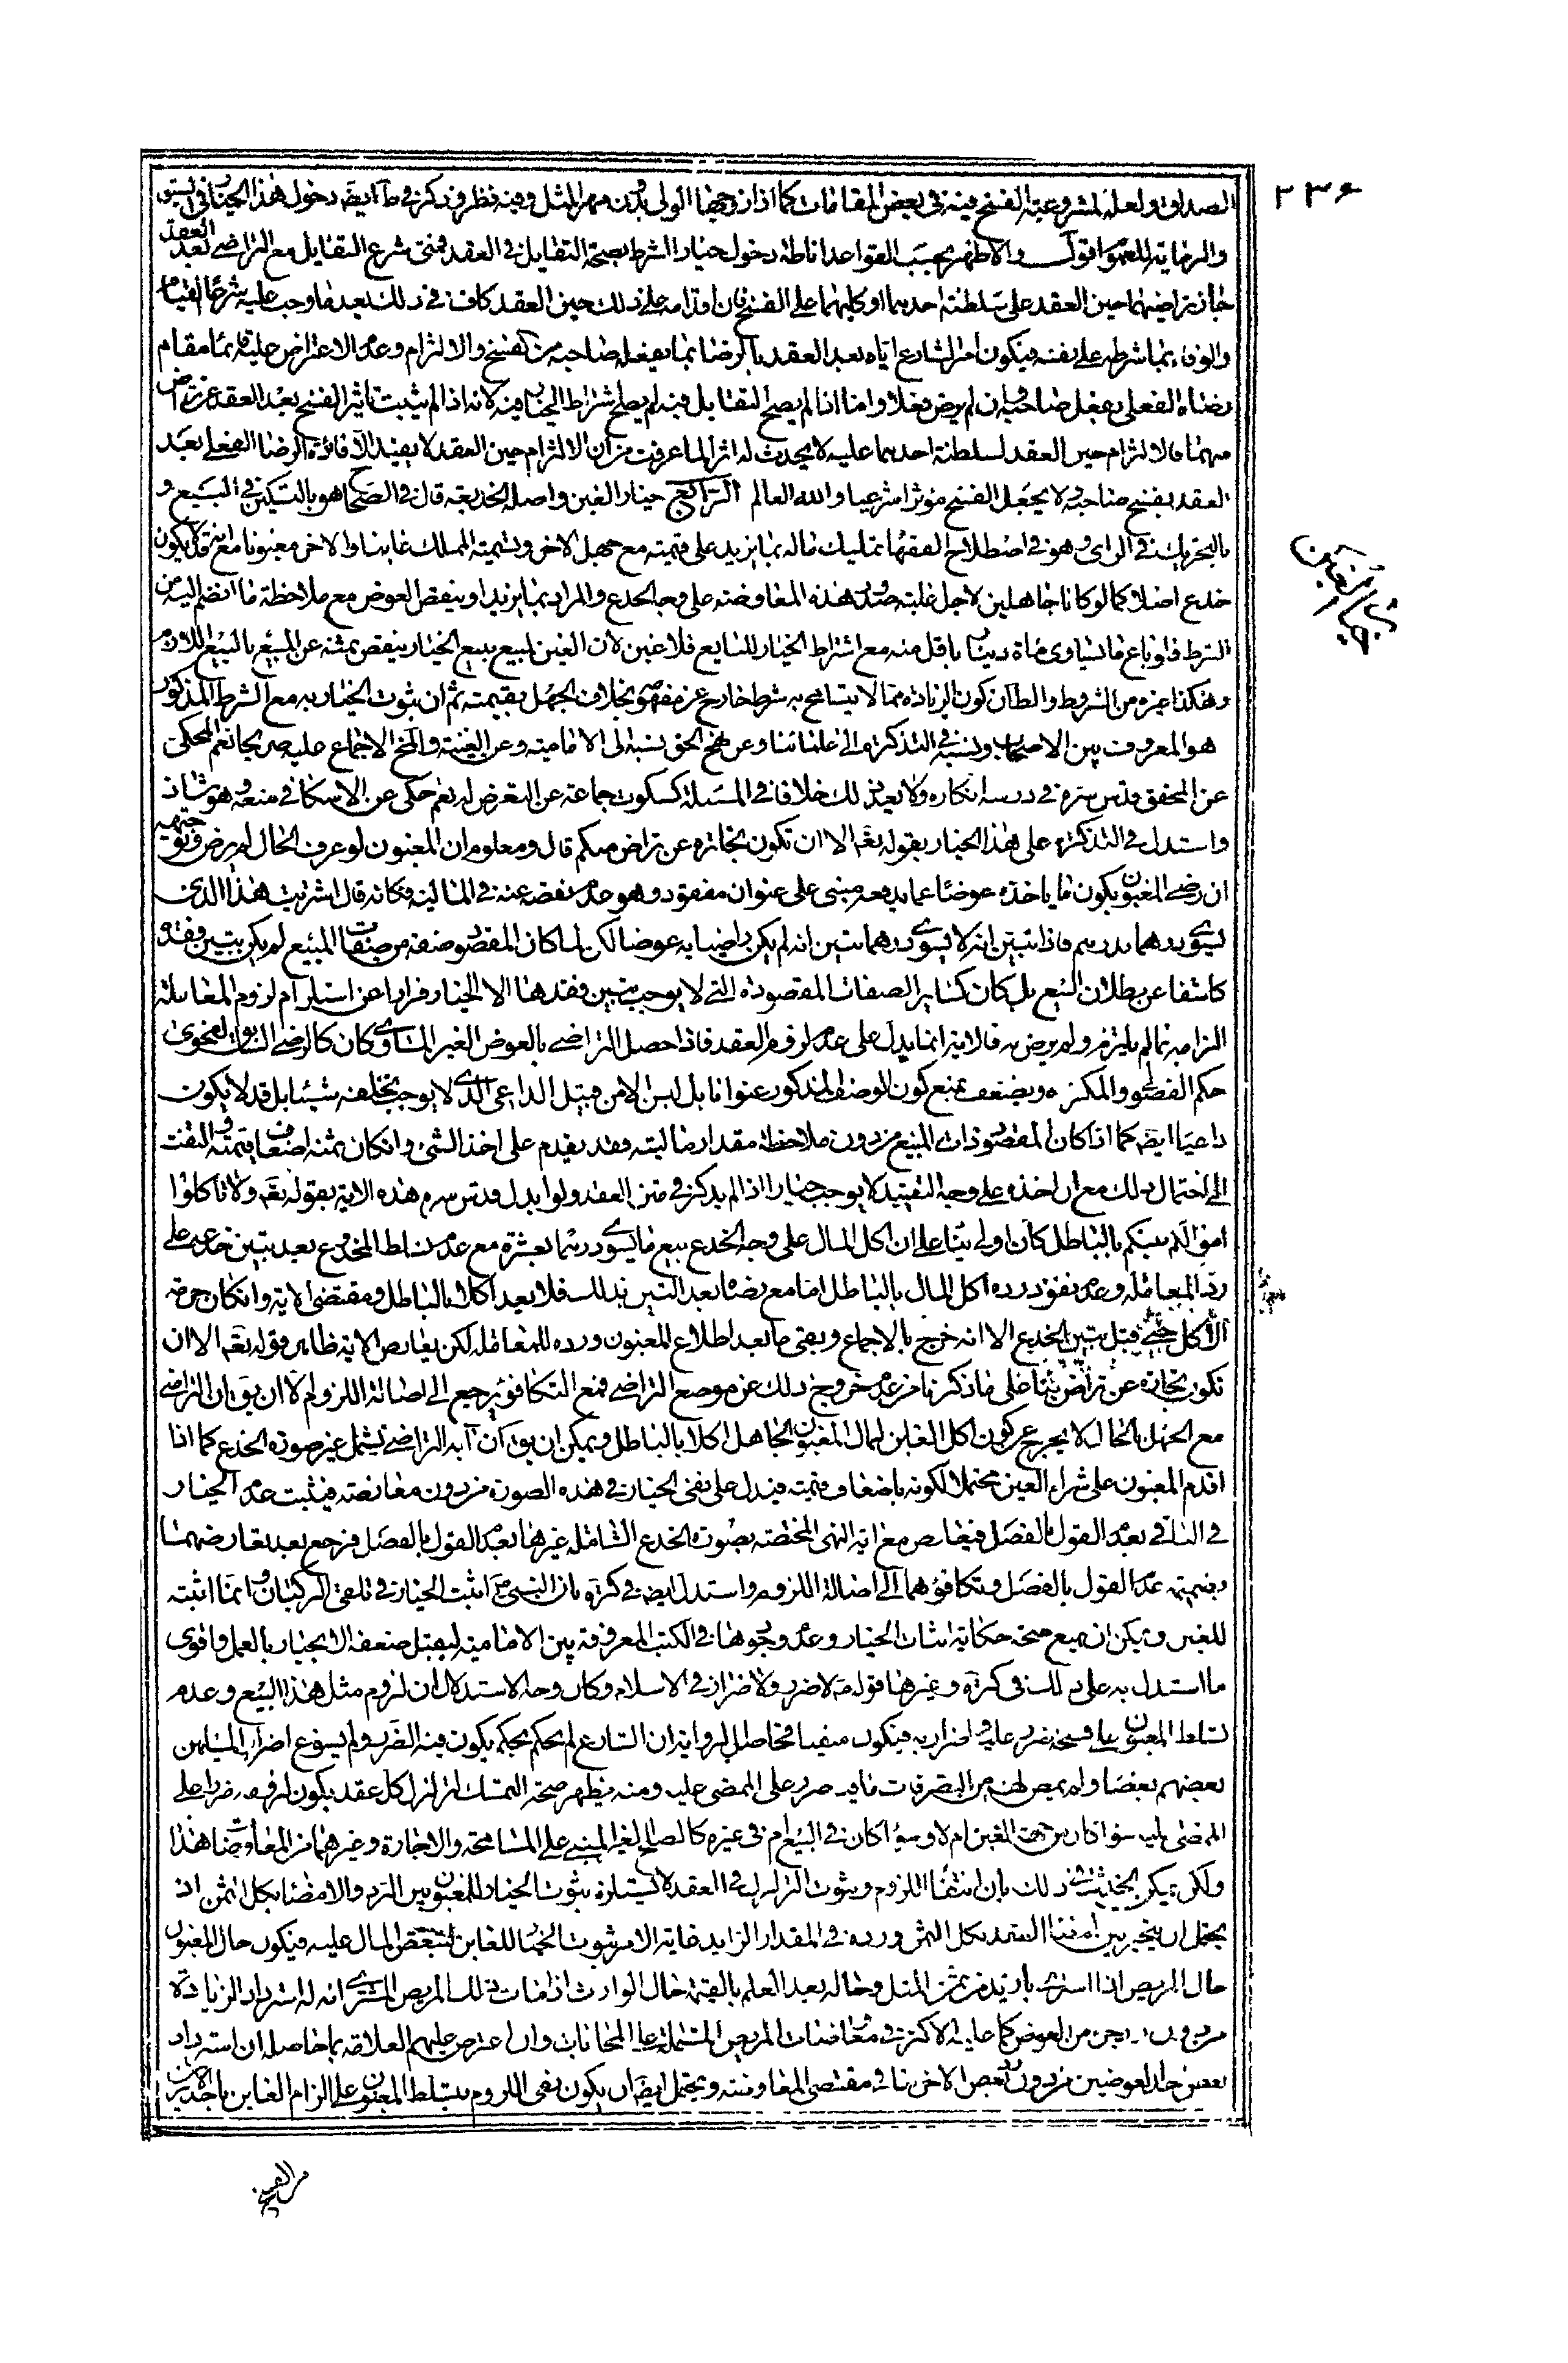 ٢٣٤
الصداق ولعله لمشروعية الفسخ فيه في بعض المقامات كما اذا زوجها الولي بدون مهر المثل وفيه نظر وذكر في كرة ايضا دخول هذا الخيار في السبق
والرماية للعموم اقول والاظهر بحسب القواعد اناطة دخول خيار الشرط بصحة التقايل في العقد فمتى شرع التقايل مع التراضي بعد العقد
جاز تراضيهما حين العقد على سلطنة احدهما او كليهما على الفسخ فان اقدامه على ذلك حين العقد كاف في ذلك بعد ما وجب عليه شرعا القيام
والوفاء بما شرطه على نفسه فيكون امر الشارع اياه بعد العقد بالرضا بما يفعله صاحبه من الفسخ والالتزام وعدم الاعتراض عليه قائما مقام
رضاه الفعلي بفعل صاحبه وان لم يرض فعلا واما اذا لم يصح التقايل فيه لم يصلح شرط الخيار فيه لانه اذا لم يثبت تاثير الفسخ بعد العقد عن تراض
منهما فالالتزام حين العقد لسلطنة احدهما عليه لا يحدث له اثرا لما عرفت من ان الالتزام حين العقد لا يفيد الا فائدة الرضا الفعلي بعد
العقد بفسخ صاحبه ولا يجعل الفسخ مؤثرا شرعيا والله العالم الرابع خيار الغبن واصله الخديعة قال في الصحاح هو بالتسكين في البيع و
بالتحريك في الراي وهو في اصطلاح الفقهاء تمليك ماله بما يزيد على قيمته مع جهل الاخر وتسمية المملك غابنا والاخر مغبونا مع انه قد لا يكون
خدع اصلا كما لو كانا جاهلين لاجل غلبة صدور هذه المعاوضة على وجه الخدع والمراد بما يزيد او ينقص العوض مع ملاحظة ما انضم اليه من
الشرط فلو باع ما يساوي مأة دينار باقل منه مع اشتراط الخيار للبايع فلا غبن لان المبيع ببيع الخيار ينقص ثمنه عن المبيع بالبيع اللازم
وهكذا غيره من الشروط والظاهر ان كون الزيادة مما لا يتسامح به شرط خارج عن مفهومه بخلاف الجهل بقيمته ثم ان ثبوت الخيار به مع الشرط المذكور
هو المعروف بين الاصحاب ونسبه في التذكرة الى علمائنا وعن نهج الحق نسبته الى الامامية وعن الغنية والمخ الاجماع عليه صريحا نعم المحكى
عن المحقق قدس سره في درسه انكاره ولا يعد ذلك خلافا في المسئلة كسكوت جماعة عن التعرض له نعم حكى عن الاسكافي منعه وهو شاذ
واستدل في التذكرة على هذا الخيار بقوله تعم الا ان تكون تجارة عن تراض منكم قال ومعلوم ان المغبون لو عرف الحال لم يرض وتوجيهه
ان رضى المغبون بكون ما ياخذه عوضا عما يدفعه مبنى على عنوان مفقود وهو عدم نقصه عنه في المالية فكانه قال اشتريت هذا الذي
يسوي درهما بدرهم فاذا تبين انه لا يسوي درهما تبين انه لم يكن راضيا به عوضا لكن لما كان المقصود صفة من صفات المبيع لم يكن تبين فقده
كاشفا عن بطلان البيع بل كان كساير الصفات المقصودة التي لا يوجب تبين فقدها الا الخيار فرارا عن استلزام لزوم المعاملة
الزامه بما لم يلتزم ولم يرض به فالاية انما يدل على عدم لزوم العقد فاذا حصل التراضي بالعوض الغير المساوي كان كالرضى السابق لفحوى
حكم الفضولي والمكره ويضعف بمنع كون الوصف المذكور عنوانا بل ليس الا من قبيل الداعي الذي لا يوجب تخلفه شيئا بل قد لا يكون
داعيا ايضا كما اذا كان المقصود ذات المبيع من دون ملاحظة مقدار ماليته فقد يقدم على اخذ الشئ وان كان ثمنه اضعاف قيمته والتفت
الى احتمال ذلك مع ان اخذه على وجه التقييد لا يوجب خيارا اذا لم يذكر في متن العقد ولو ابدل قدس سره هذه الاية بقوله تعم ولا تاكلوا
اموالكم بينكم بالباطل كان اولى بناء على ان اكل المال على وجه الخدع ببيع ما يسوي درهما بعشرة مع عدم تسلط المخدوع بعد تبين خدعه على
رد المعاملة وعدم نفوذ رده اكل المال بالباطل اما مع رضاه بعد التبين بذلك فلا يعد اكلا بالباطل ومقتضى الاية وان كان حرمة
الاكل حتى قبل تبين الخدع الا انه خرج بالاجماع وبقى ما بعد اطلاع المغبون ورده للمعاملة لكن يعارض الاية ظاهر قوله تعم الا ان
تكون تجارة عن تراض بناء على ما ذكرنا من عدم خروج ذلك عن موضع التراضي فمع التكافؤ يرجع الى اصالة اللزوم الا ان يق ان التراضي
مع الجهل بالحال لا يخرج عن كون اكل الغابن لمال المغبون الجاهل اكلا بالباطل ويمكن ان يق ان اية التراضي تشمل غير صورة الخدع كما اذا
اقدم المغبون على شراء العين محتملا لكونه باضعاف قيمته فيدل على نفى الخيار في هذه الصورة من دون معارضة فيثبت عدم الخيار
في الباقي بعدم القول بالفصل فيعارض مع اية النهي المختصة بصورة الخدع الشاملة غيرها بعدم القول بالفصل فيرجع بعد تعارضهما
بضميمة عدم القول بالفصل وتكافؤهما الى اصالة اللزوم واستدل ايضا في كرة بان النبي ص اثبت الخيار في تلقى الركبان وانما اثبته
للغبن ويمكن ان يمنع صحة حكاية اثبات الخيار وعدم وجودها في الكتب المعروفة بين الامامية ليقبل ضعفه الانجبار بالعمل واقوى
ما استدل به على ذلك في كرة وغيرها قوله ص لا ضرر ولا ضرار في الاسلام وكان وجه الاستدلال ان لزوم مثل هذا البيع وعدم
تسلط المغبون على فسخه ضرر عليه واضرار به فيكون منفيا فحاصل الرواية ان الشارع لم يحكم بحكم يكون فيه الضرر ولم يسوغ اضرار المسلمين
بعضهم بعضا ولم يمض لهم من التصرفات ما فيه ضرر على الممضى عليه ومنه يظهر صحة التمسك لتزلزل كل عقد يكون لزومه ضررا على
الممضى عليه سواء كان من جهة الغبن ام لا وسواء كان في البيع ام في غيره كالصلح الغير المبني على المسامحة والاجارة وغيرهما من المعاوضات هذا
ولكن يمكن الخدشة في ذلك بان انتفاء اللزوم وثبوت التزلزل في العقد لا يستلزم ثبوت الخيار للمغبون بين الرد والامضاء بكل الثمن اذ
يحتمل ان يتخير بين امضاء العقد بكل الثمن ورده في المقدار الزايد غاية الامر ثبوت الخيار للغابن لتبعض المال عليه فيكون حال المغبون
حال المريض اذا اشترى بازيد من ثمن المثل وحاله بعد العلم بالقيمة حال الوارث اذا مات ذلك المريض المشتري انه له استرداد الزيادة
من دون رد جزء من العوض كما عليه الاكثر في معاوضات المريض المشتملة على المحاباة وان اعترض عليهم العلامة بما حاصله ان استرداد
بعض احد العوضين من دون رد بعض الاخر ينافي مقتضى المعاوضة ويحتمل ايضا ان يكون نفى اللزوم بتسلط المغبون على الزام الغابن باحد الامرين
خيار الغبن
من الفسخ